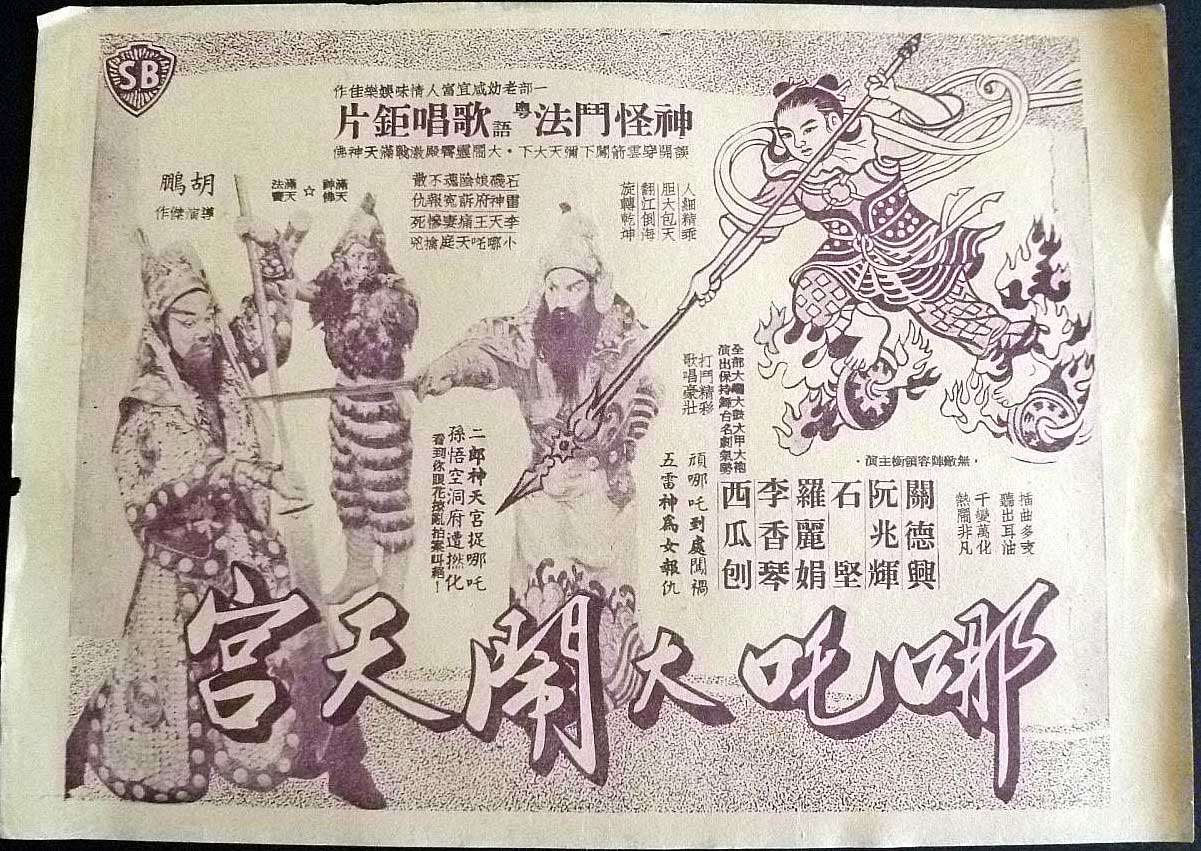 SB
一部老幼咸宜富人情味娛樂佳作
神怪鬥法粵語歌唱鉅片
誤開穿雲箭闖下彌天大下・大鬧靈霄殿激戰滿天神佛
胡鵬
導演傑作
滿天神佛☆滿天法寶
石磯娘娘陰魂不散
雷神府訴冤報仇
李天王痛妻慘死
小哪吒天庭擒兇
人細精乖
胆大包天
翻江倒海
旋轉乾坤
全部大鑼大鼓大甲大袍
演出保持舞台名劇氣勢
打鬥精彩
歌唱豪壯
頑哪吒到處闖禍
五雷神為女報仇
二郎神天宮捉哪吒
孫悟空洞府遭撚化
看到你眼花撩亂拍案叫絕！
・無敵陣容領銜主演・
關德興
阮兆輝
石堅
羅麗娟
李香琴
西瓜刨
插曲多支
聽出耳油
千變萬化
熱鬧非凡
哪吒大鬧天宮